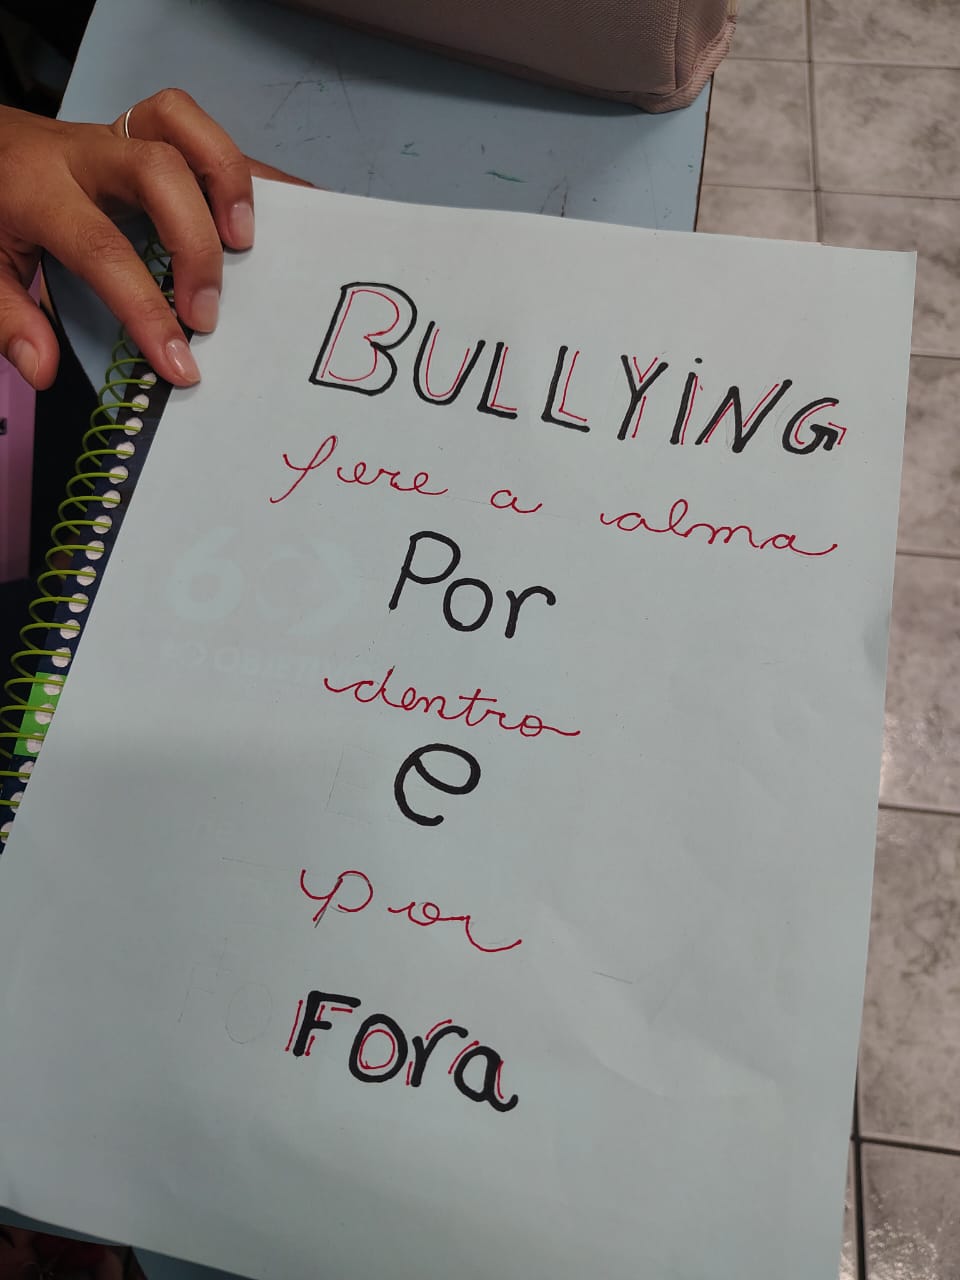 BULLYiNG
fere a alma
Por
dentro
e
por
Fora